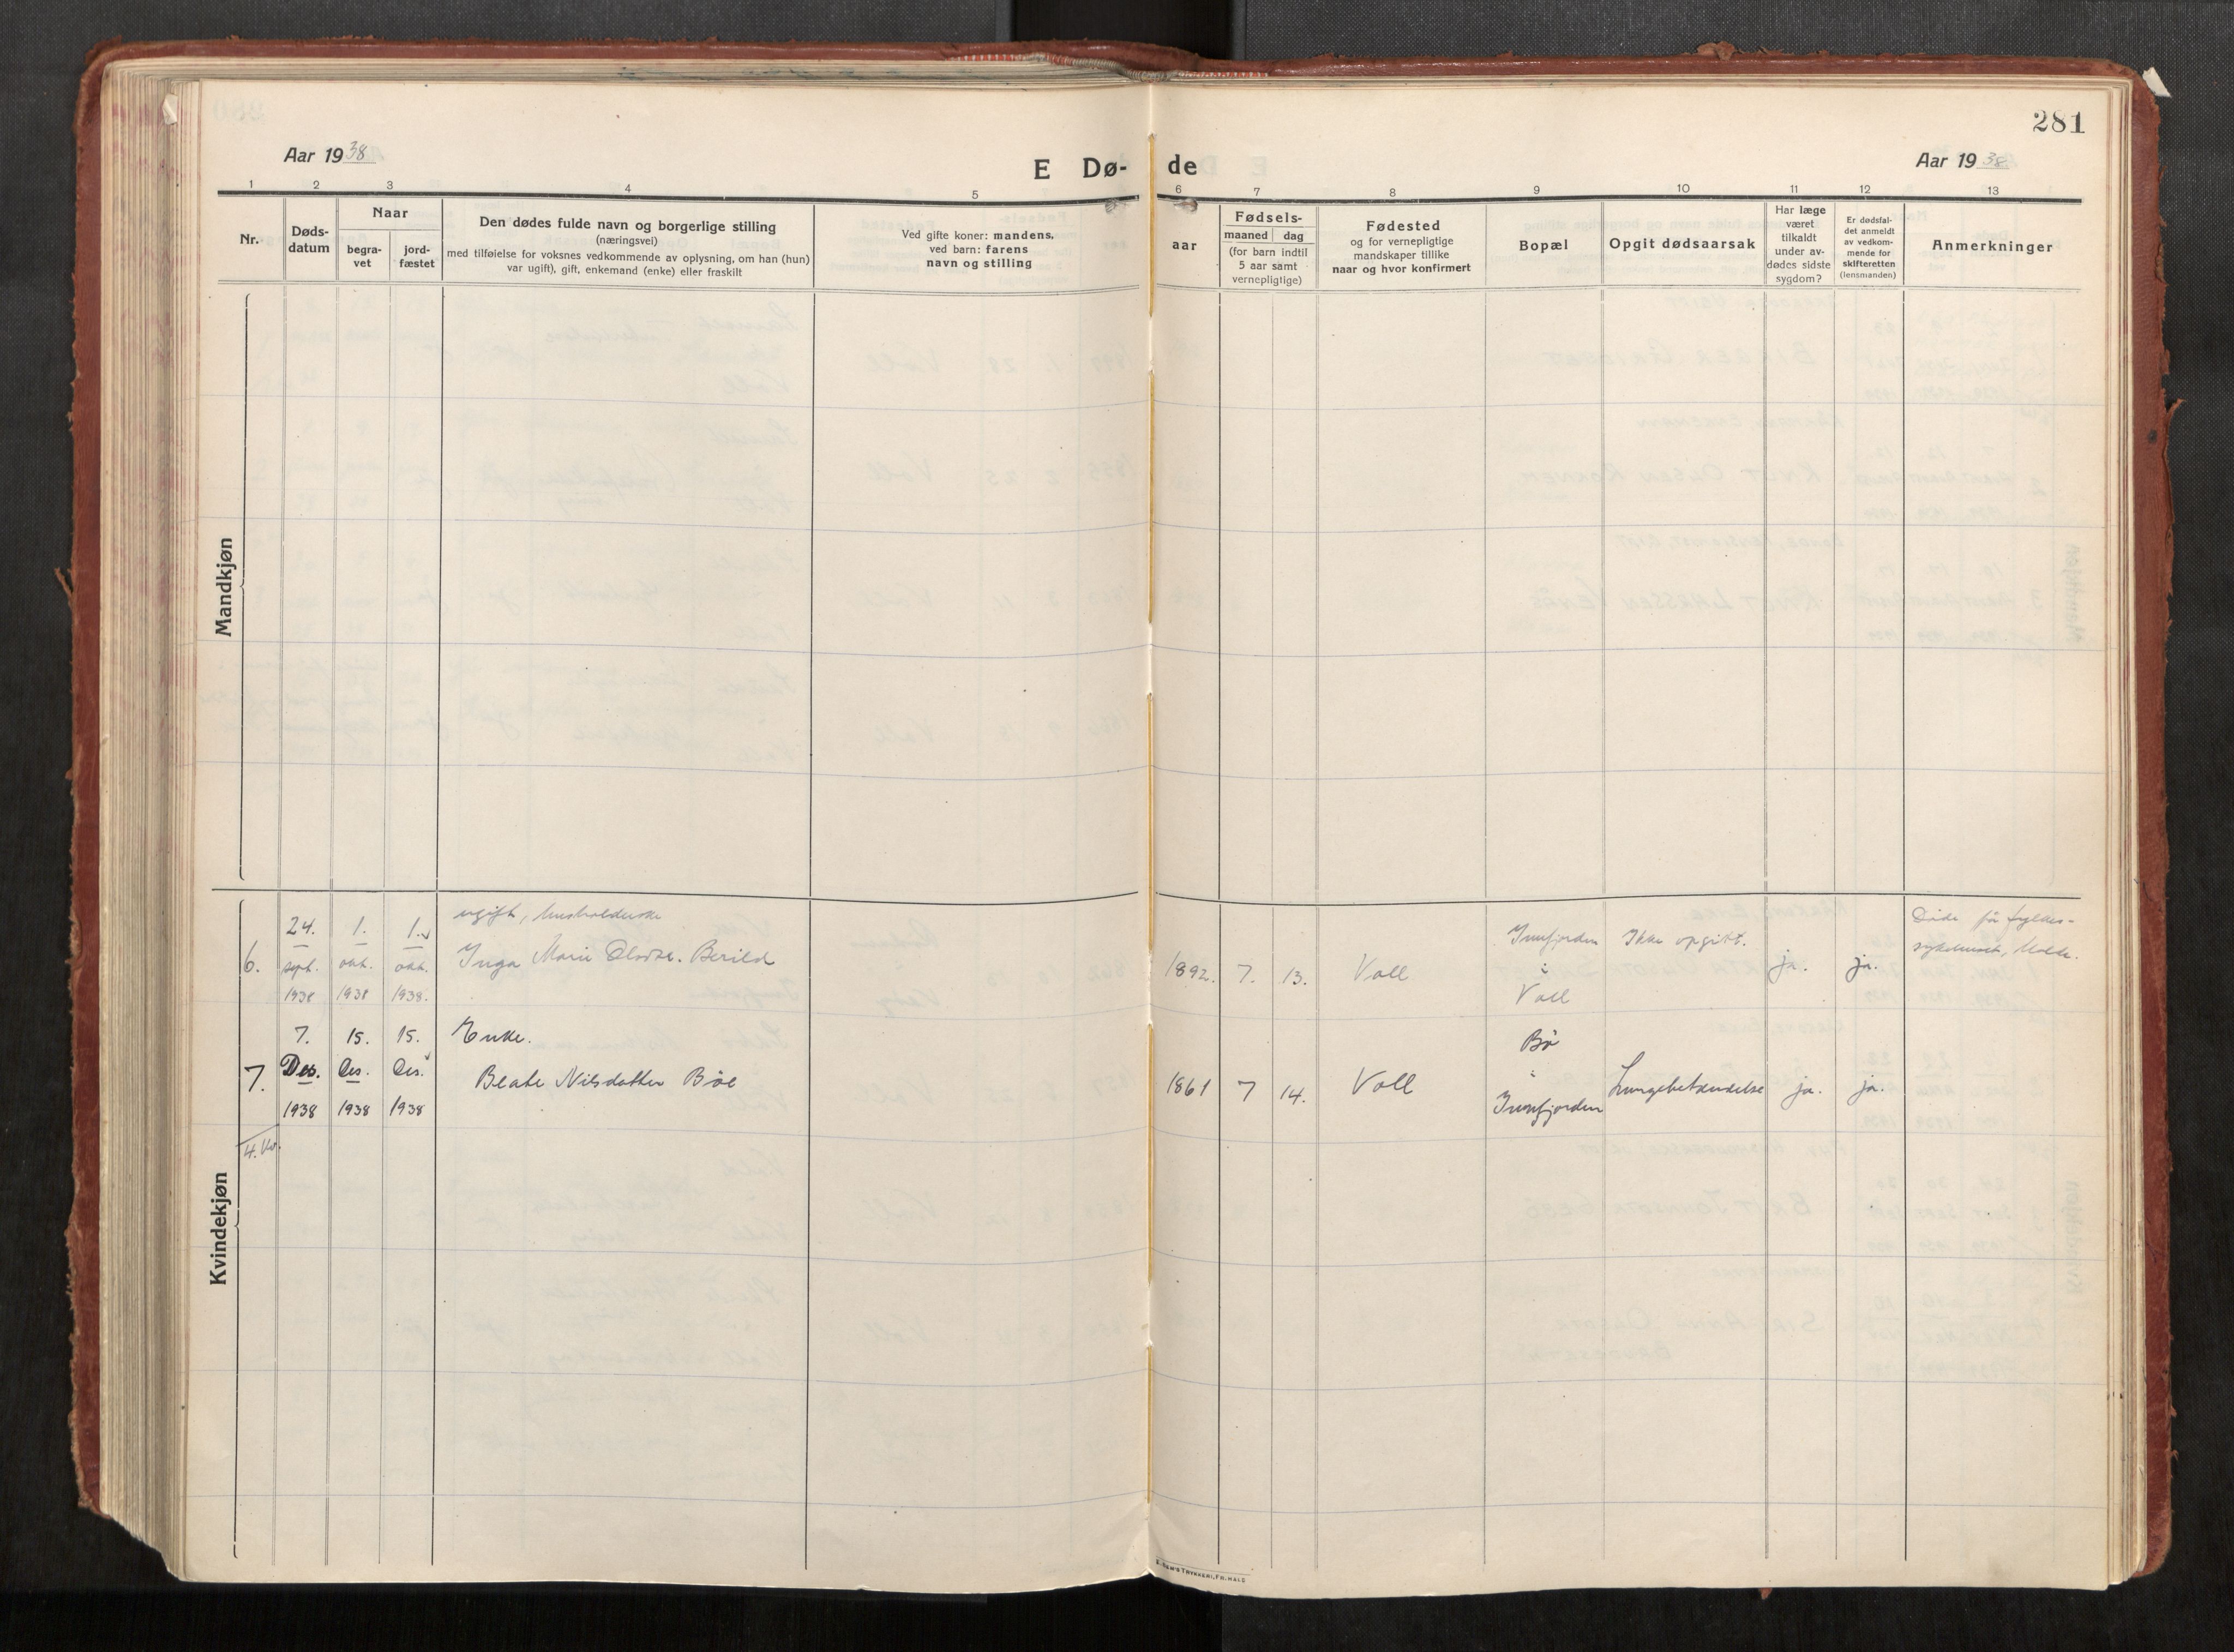 281
Aar 1938
E Dø-
de
Aar 1938
1 2 3 4 5 6 7 8 9 10 11 12 13
Nr.
Døds-
datum
Naar
begra-
vet
jord-
fæstet
Den dødes fulde navn og borgerlige stilling
(næringsvei)
med tilføielse for voksnes vedkommende av oplysning, om han (hun)
var ugift), gift, enkemand (enke) eller fraskilt
Ved gifte koner: mandens,
ved barn: farens
navn og stilling
aar
Fødsels-
maaned dag
(for barn indtil
5 aar samt
vernepligtige)
Fødested
og for vernepligtige
mandskaper tillike
naar og hvor konfirmert
Bopæl
Opgit dødsaarsak
Har læge
været
tilkaldt
under av-
dødes sidste
sygdom?
Er dødsfal-
det anmeldt
av vedkom-
mende for
skifteretten
(lensmanden)
Anmerkninger
Mandkjøn
Kvindekjøn
6.
24.
sept.
1938
1.
okt.
1938
1.
okt.
1938.
ugift, husholderske
Inga Marie Olodtr. Berild
1892. 7. 13. Voll
Innfjorden
i
Voll
Ikke opgitt.
ja. ja.
Døde på fylkes-
sykehuset, Molde.
7.
7.
Des.
1938
15.
Des.
1938
15.
Des.
1938
Enke.
Beate Nilsdatter Bøe
1861 7 14. Voll
Bø
i
Innfjorden
Lungebetændelse
ja. ja.
4. Kv.